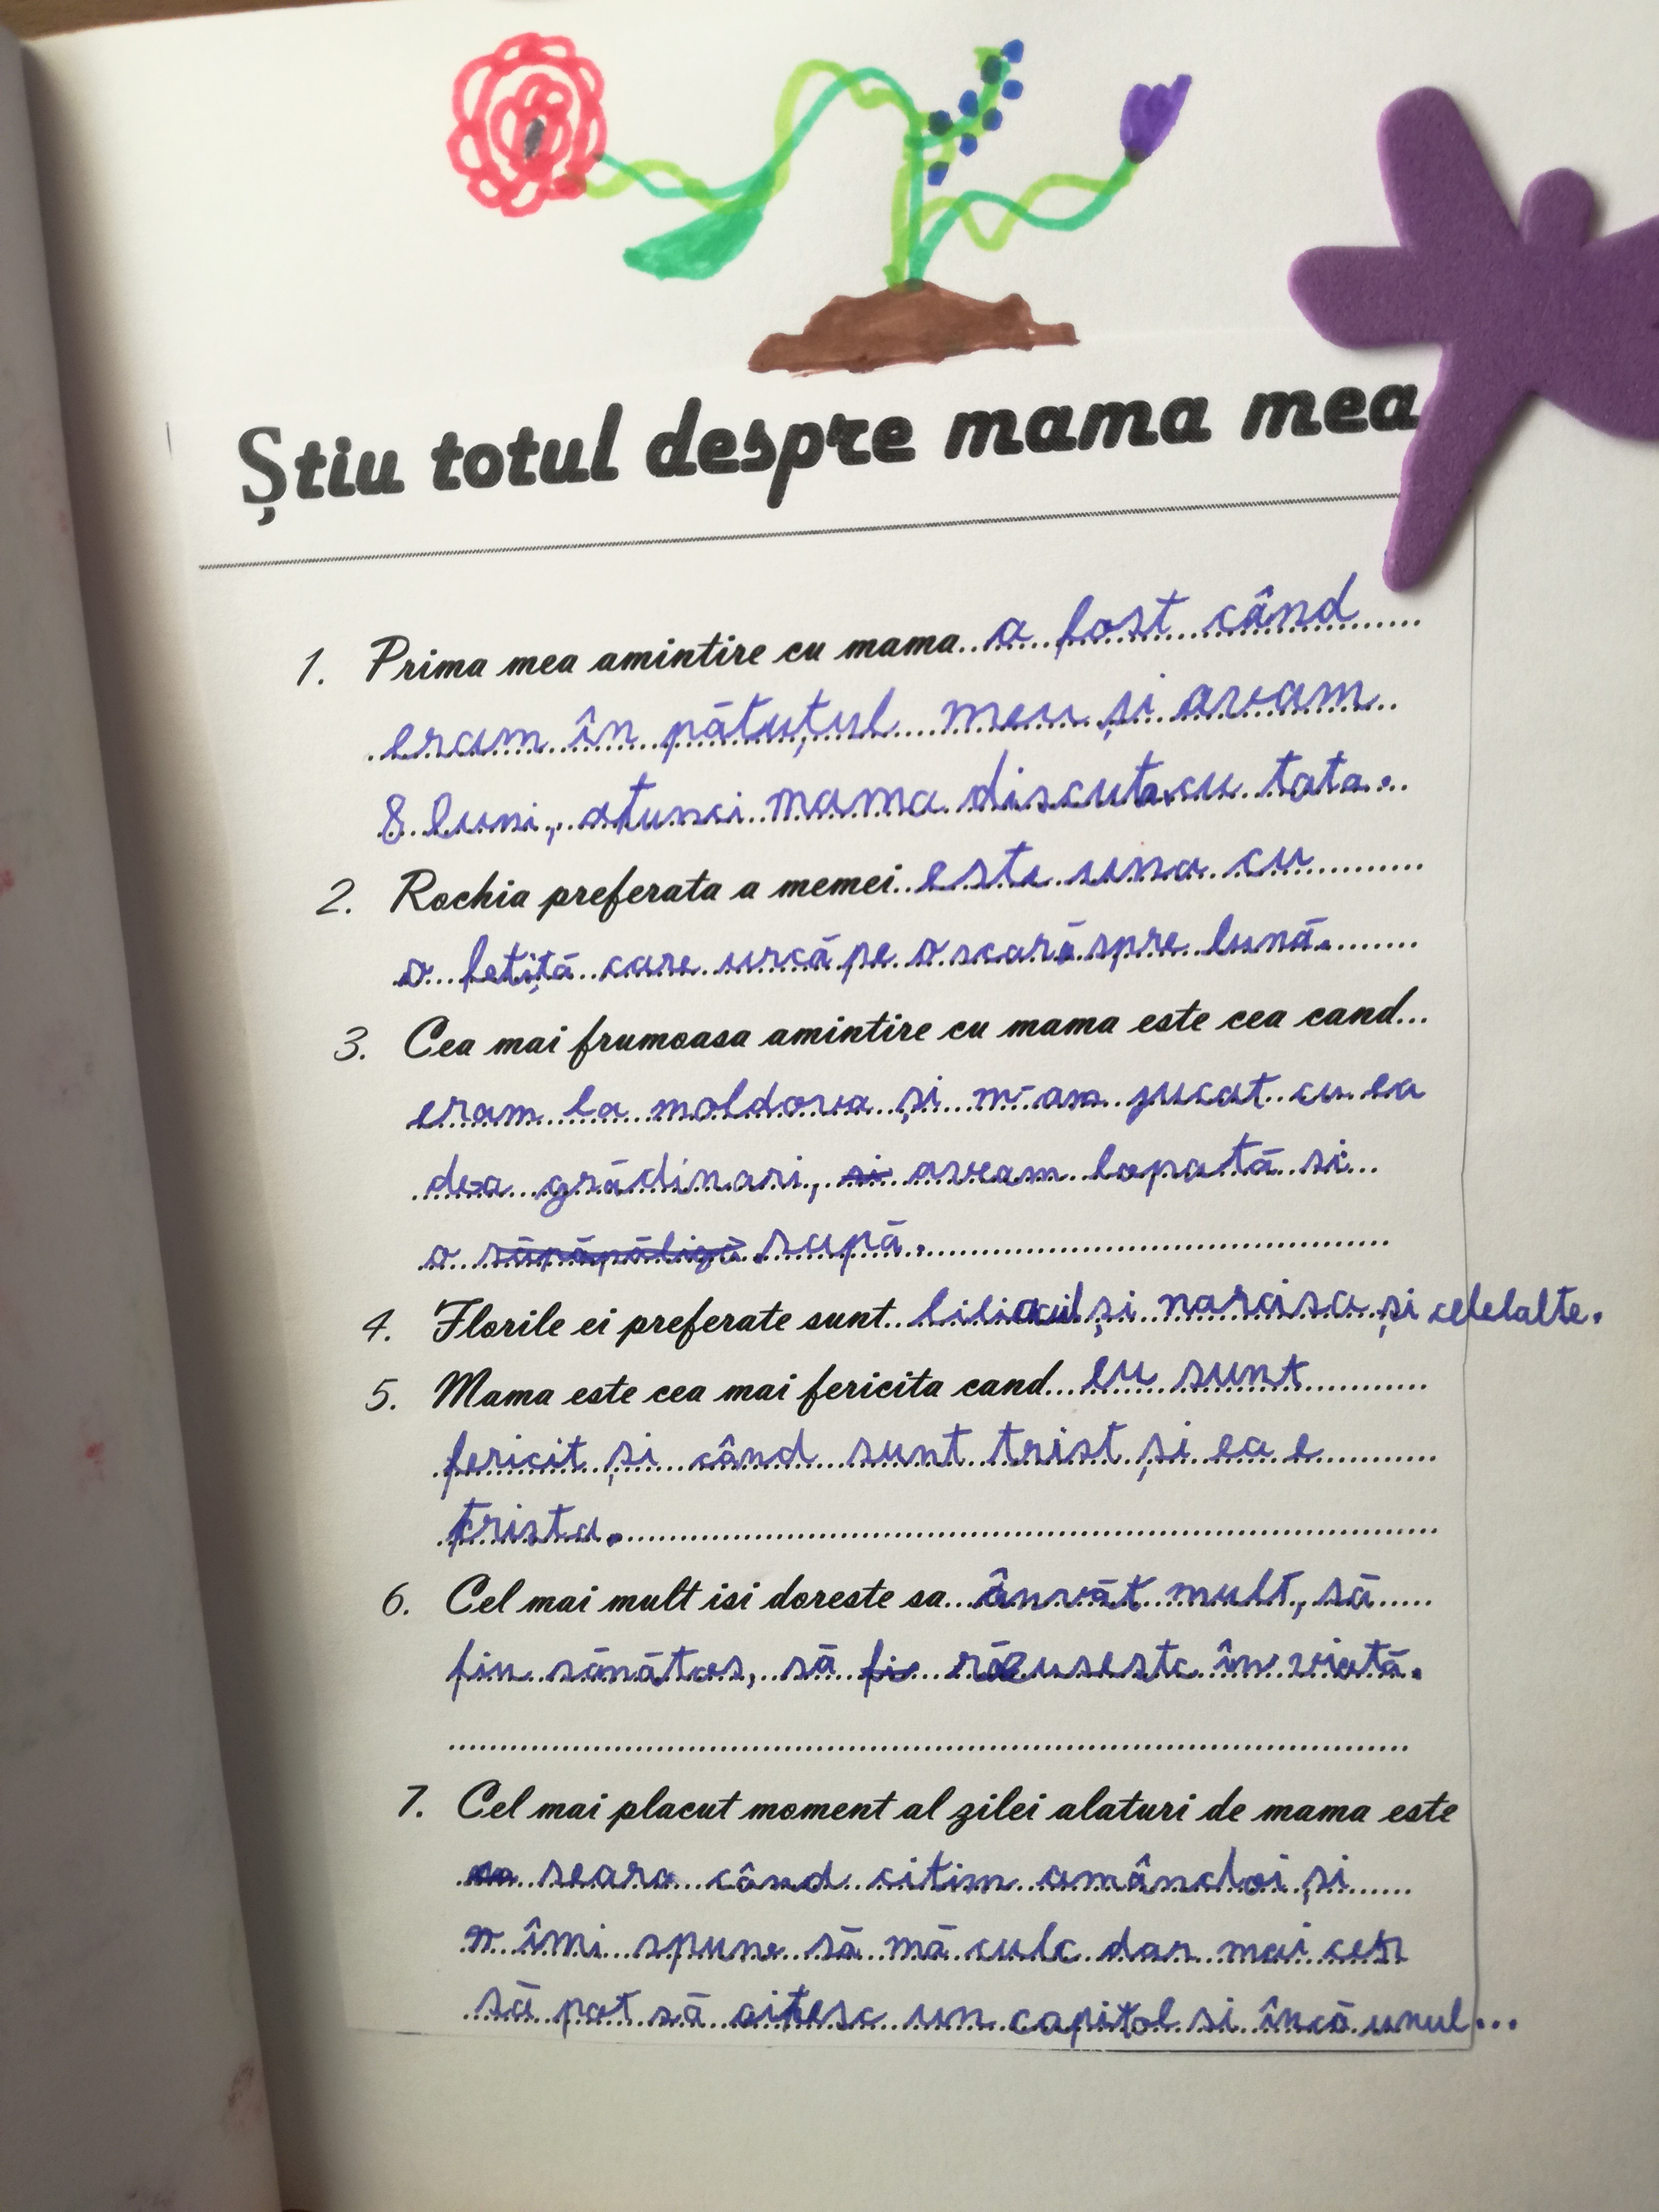 Știu totul despre mama mea
1. Prima mea amintire cu mama a fost când
eram în pătuțul meu și aveam
8 luni, atunci mama discuta cu tata.
2. Rochia preferata a memei este una cu
o fetiță care urcă pe o scară spre lună.
3. Cea mai frumoasa amintire cu mama este cea cand...
eram la moldova și m-am jucat cu ea
dea grădinari, si aveam lopată si
o săpăpăligă supă.
4. Florile ei preferate sunt liliacul și narcisa și celelalte.
5. Mama este cea mai fericita cand... eu sunt
fericit și când sunt trist și ea e
trista.
6. Cel mai mult isi doreste sa... învăt mult, să
fiu sănătos, să fi răuseste în viată.
7. Cel mai placut moment al zilei alaturi de mama este
seara când citim amândoi și
îmi spune să mă culc dar mai cer
să pot să citesc un capitol si încă unul...